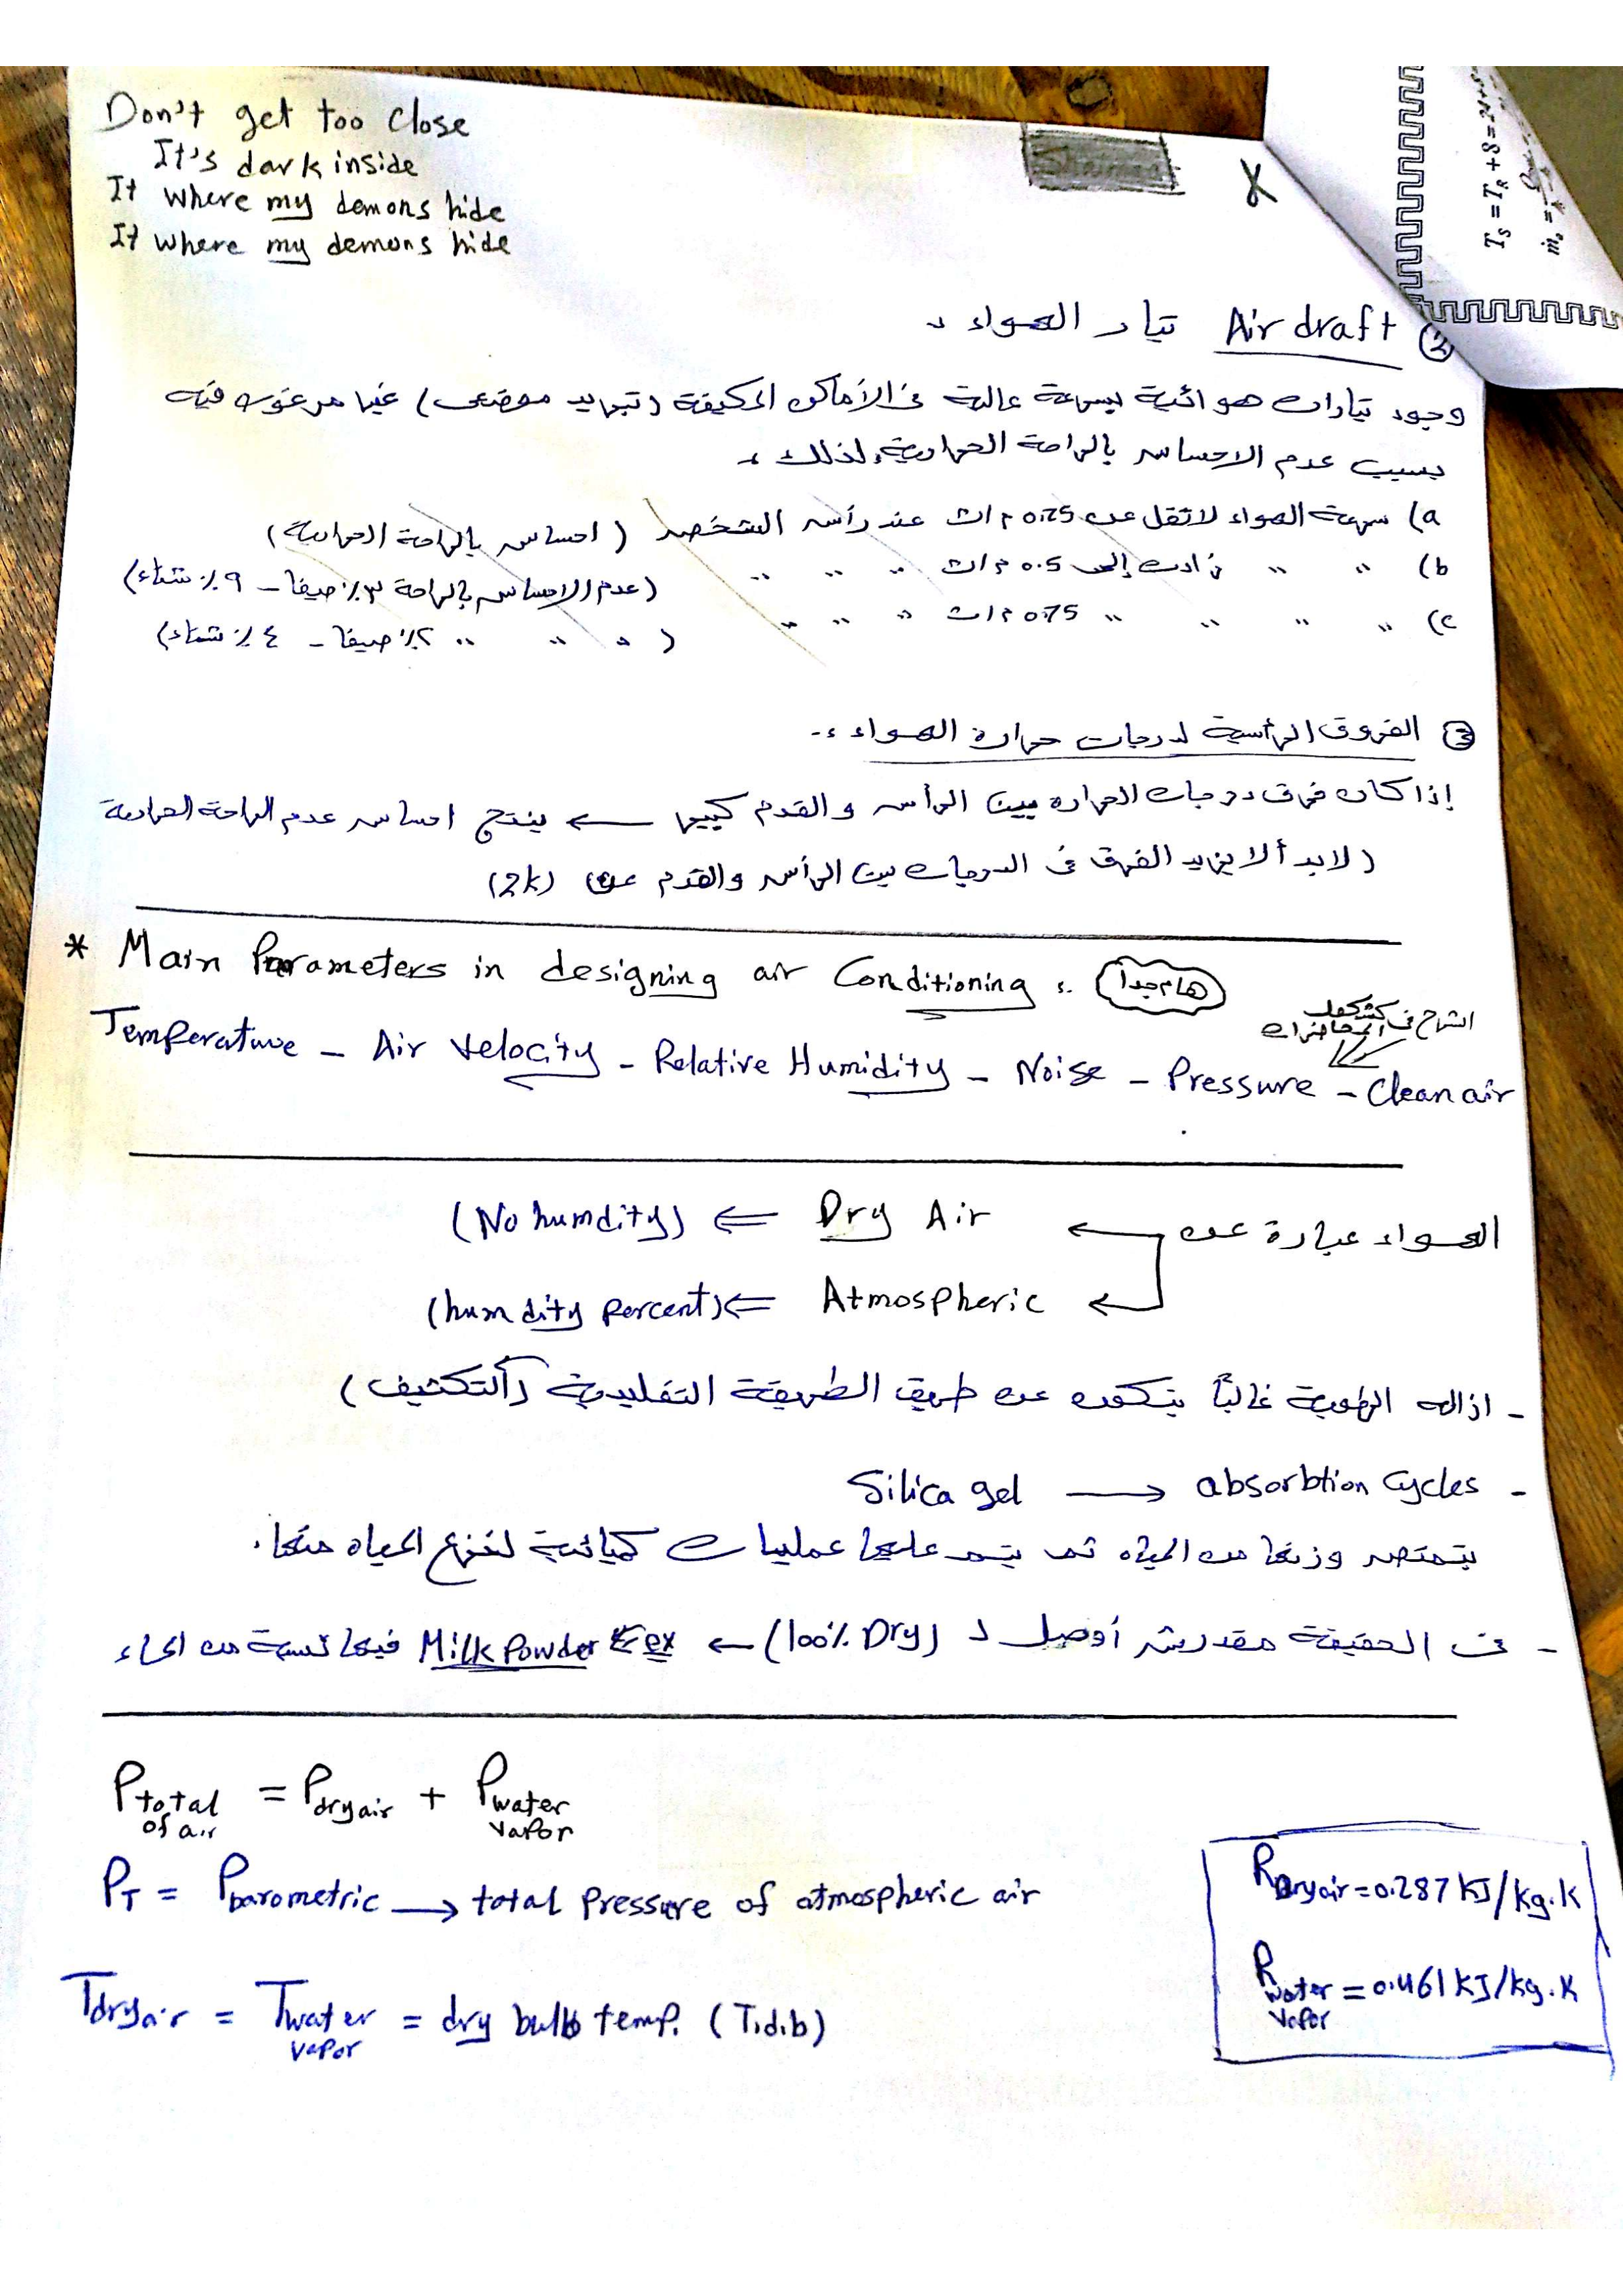 Don't get too close
It's dark inside
It where my demons hide
It where my demons hide
T_S = T_R + 8 =
ṁ_a =
② Air draft تيار الهواء :
وجود تيارات هوائية بسرعة عالية فى الأماكن المكيفة (تبريد موضعى) غير مرغوب فيه
بسبب عدم الاحساس بالراحة الحرارية, لذلك :
a) سرعة الهواء لا تقل عن 0.25 م/ث عند رأس الشخص (احساس بالراحة الحرارية)
b) " " زادت إلى 0.5 م/ث " " " (عدم الاحساس بالراحة ٣٪ صيفا - ٩٪ شتاء)
c) " " " " 0.75 م/ث " " " ( " " " ٢٪ صيفا - ٤٪ شتاء)
③ الفروق الرأسية لدرجات حرارة الهواء :-
إذا كان فرق درجات الحرارة بين الرأس والقدم كبير ← ينتج احساس عدم الراحة الحرارية
(لابد ألا يزيد الفرق فى الدرجات بين الرأس والقدم عن (2k)
* Main Parameters in designing air Conditioning :. هام جداً
الشرح فى كشكول المحاضرات
Temperature - Air Velocity - Relative Humidity - Noise - Pressure - Clean air
الهواء عبارة عن ← Dry Air ⇐ (No humdity)
← Atmospheric ⇐ (humdity percent)
- ازاله الرطوبة غالباً يتكون عن طريق الطريقة التقليدية (ألتكثيف)
- absorbtion Cycles ⟶ Silica gel
بتمتص وزنها من المياه ثم يتم عليها عمليات كميائية لخروج المياه منها.
- فى الحقيقة مقدرش أوصل لـ (100% Dry) ← ex ⇐ Milk Powder فيها نسبة من الماء
P total of air = P dry air + P water vapor
P_T = P barometric ⟶ total pressure of atmospheric air
T dry air = T water vapor = dry bulb temp. (T.d.b)
R Dry air = 0.287 KJ/kg.K
R water vapor = 0.461 KJ/kg.K